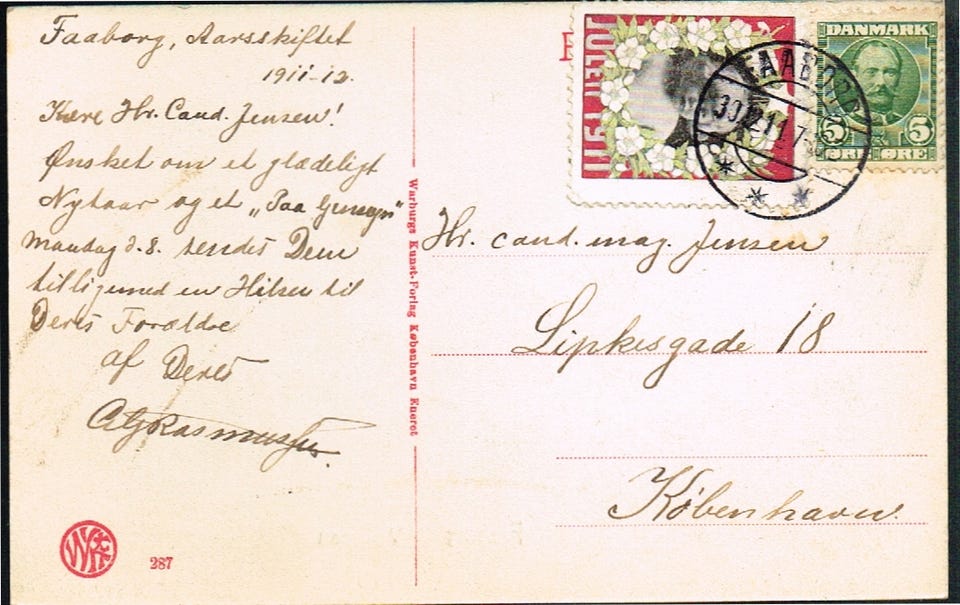 Faaborg, Aarsskiftet
1911-12.
Kære Hr. Cand. Jensen!
Ønsket om et glædeligt
Nytaar og et „Paa Gensyn"
Mandag d. 8. sendes Dem
tilligemed en Hilsen til
Deres Forældre
af Deres
Rasmussen.
287
Warburgs Kunst-Forlag København Eneret
JULEN 1911
DANMARK
5 5
ØRE ØRE
FAABORG
30.12.11.7
Hr. cand. mag. Jensen
Lipkesgade 18
København.